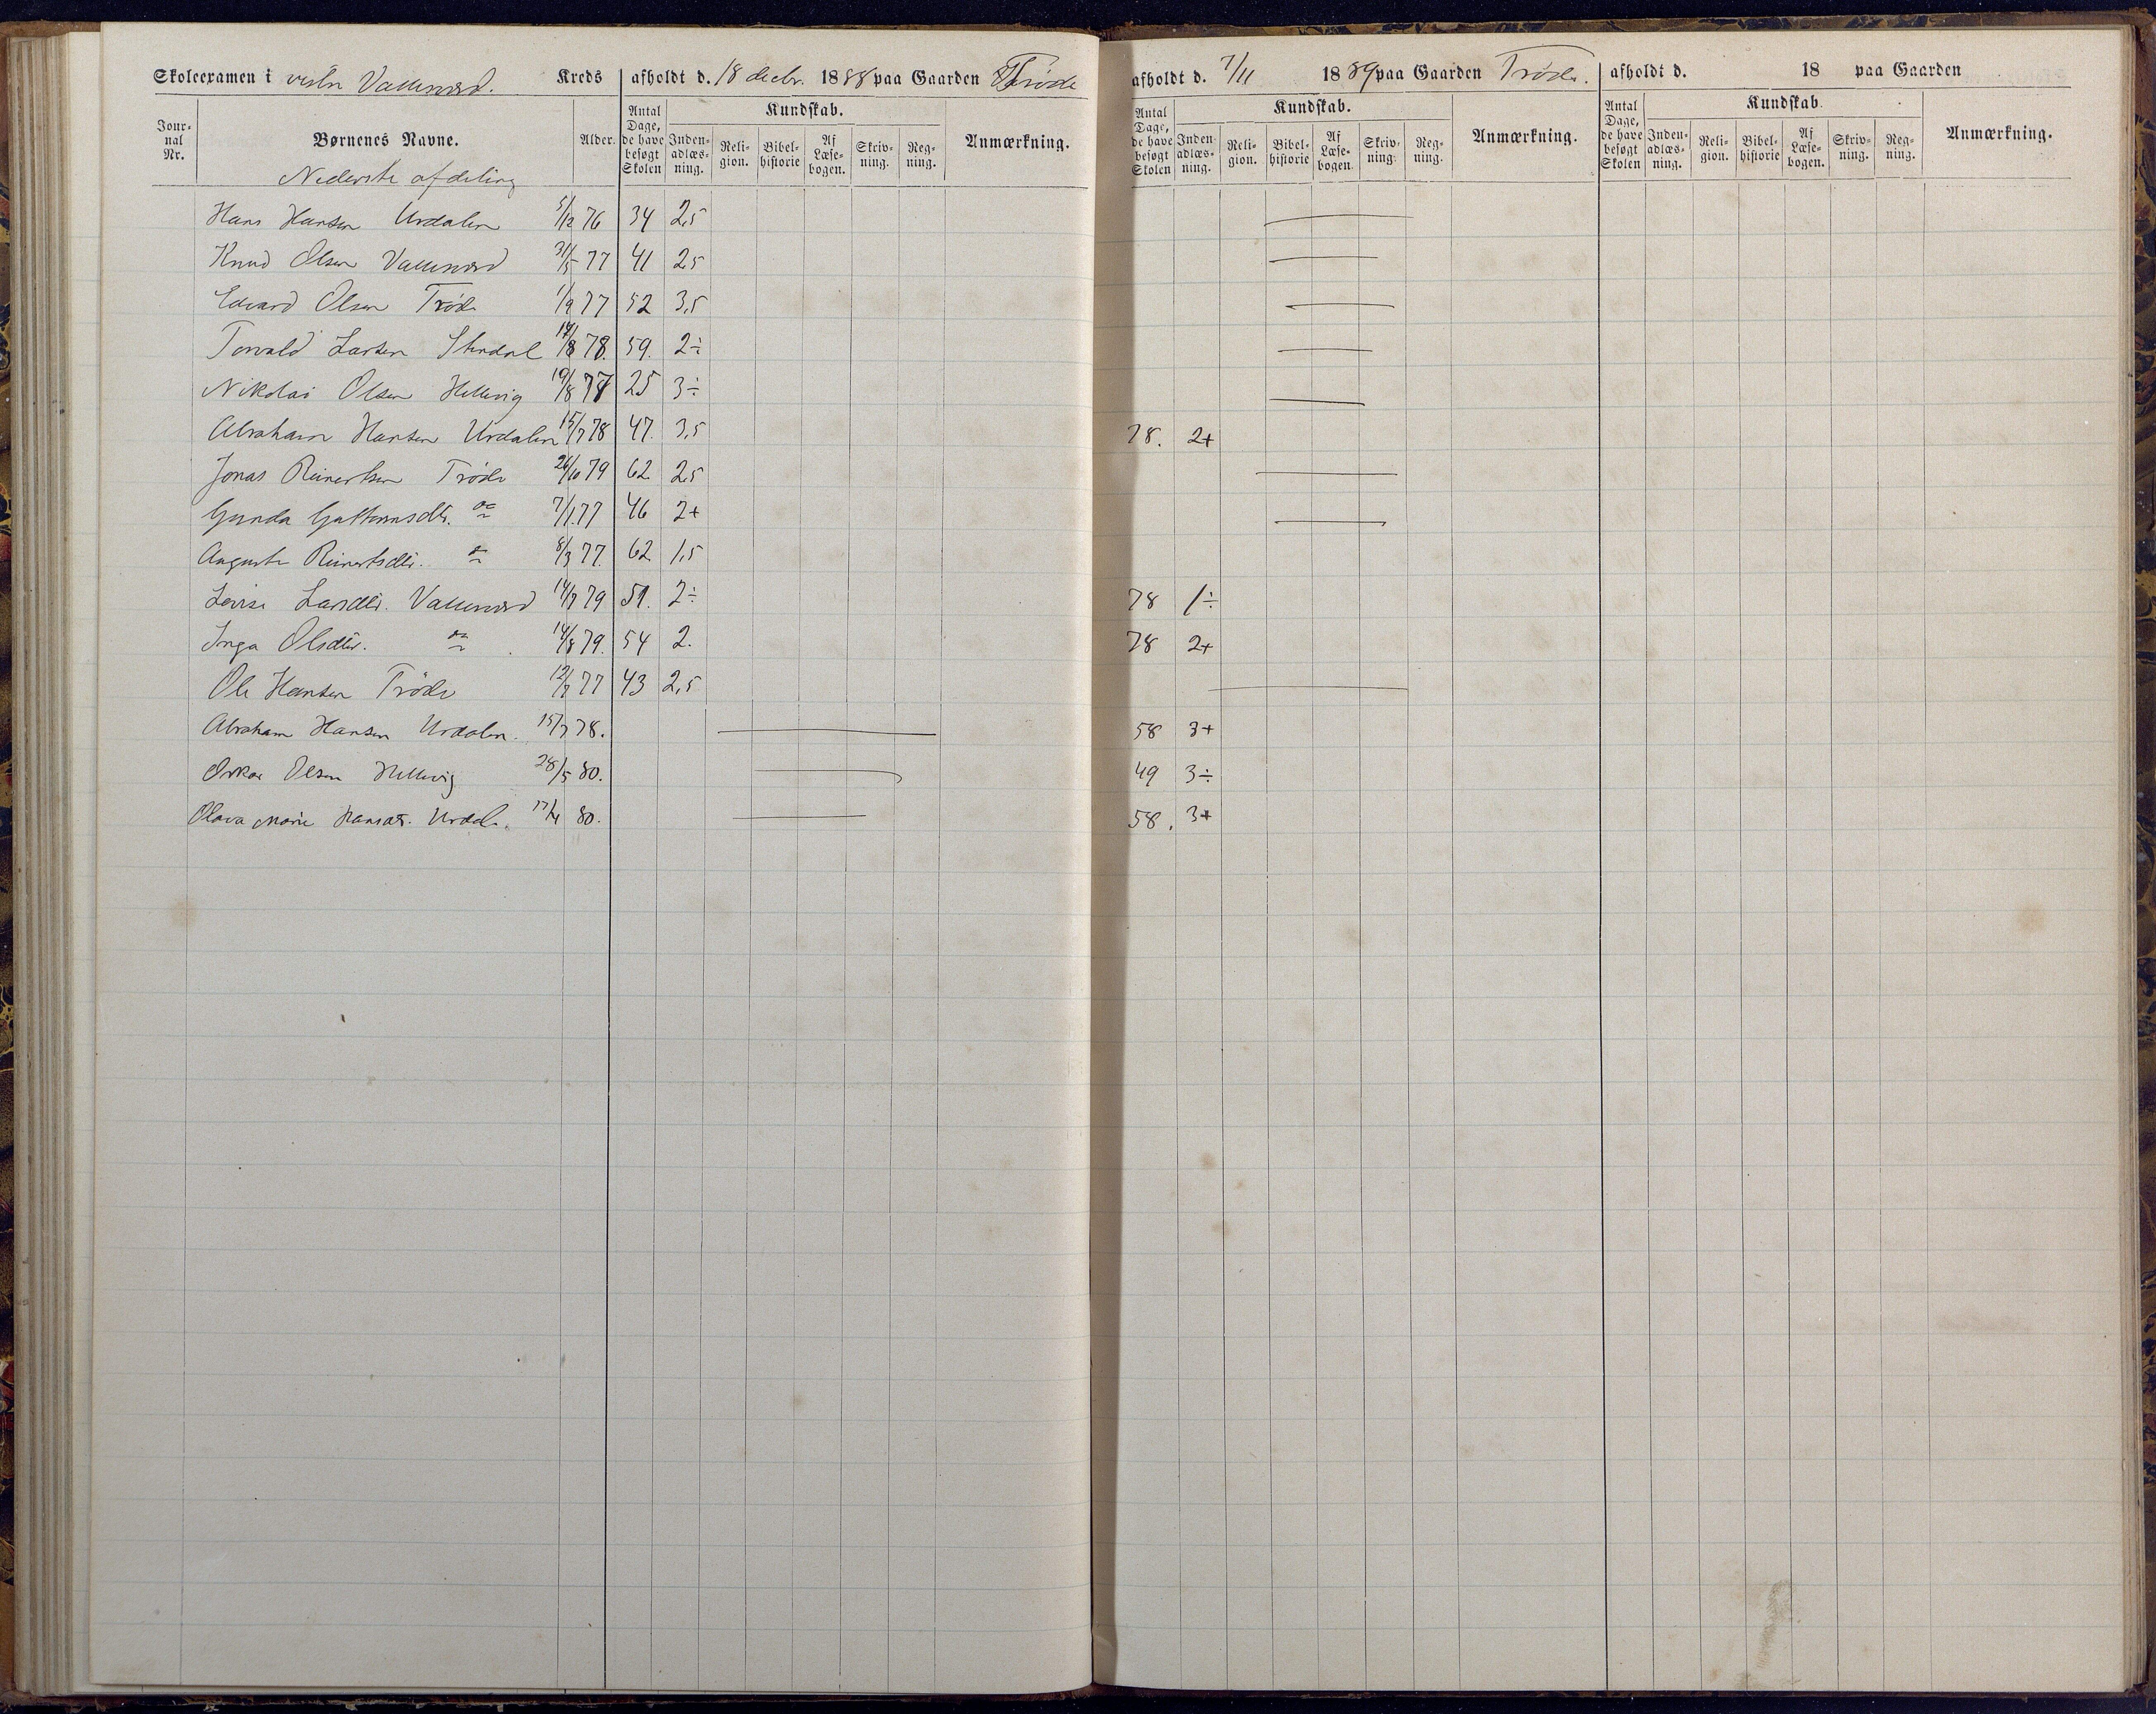 Skoleexamen i vestre Vallesverd. Kreds afholdt d. 18 decbr. 1888 paa Gaarden Trøde
afholdt d. 7/11 1889 paa Gaarden Trøde. afholdt d. 18 paa Gaarden
Journal Nr. Børnenes Navne. Alder. Antal Dage, de have besøgt Skolen Kundskab. Indenadlæsning. Religion. Bibelhistorie Af Læsebogen. Skrivning. Regning. Anmærkning.
Antal Dage, de have besøgt Skolen Kundskab. Indenadlæsning. Religion. Bibelhistorie Af Læsebogen. Skrivning. Regning. Anmærkning.
Antal Dage, de have besøgt Skolen Kundskab. Indenadlæsning. Religion. Bibelhistorie Af Læsebogen. Skrivning. Regning. Anmærkning.
Nederste afdeling
Hans Hansen Urdalen 5/12 76 34 2,5
Knud Olsen Vallesverd 31/5 77 41 2,5
Edvard Olsen Trøde 1/9 77 52 3,5
Torvald Larsen Stendal 14/8 78. 59. 2÷
Nikolai Olsen Hellevig 19/8 77 25 3÷
Abraham Hansen Urdalen 15/7 78 47. 3,5 78. 2+
Jonas Reinertsen Trøde 26/10 79 62 2,5
Gunda Guttormsdtr. do 7/1 77 46 2+
Auguste Reinertsdtr. do 8/3 77. 62 1,5
Lovise Larsdtr. Vallesverd 14/7 79 51. 2÷ 78 1÷
Inga Olsdtr. do 14/8 79. 54 2. 78 2+
Ole Hansen Trøde 12/7 77 43 2,5
Abraham Hansen Urdalen. 15/7 78. 58 3+
Oskar Olsen Hellevig 28/5 80. 49 3÷
Olava Marie Hansdtr. Urdal. 17/4 80. 58. 3+